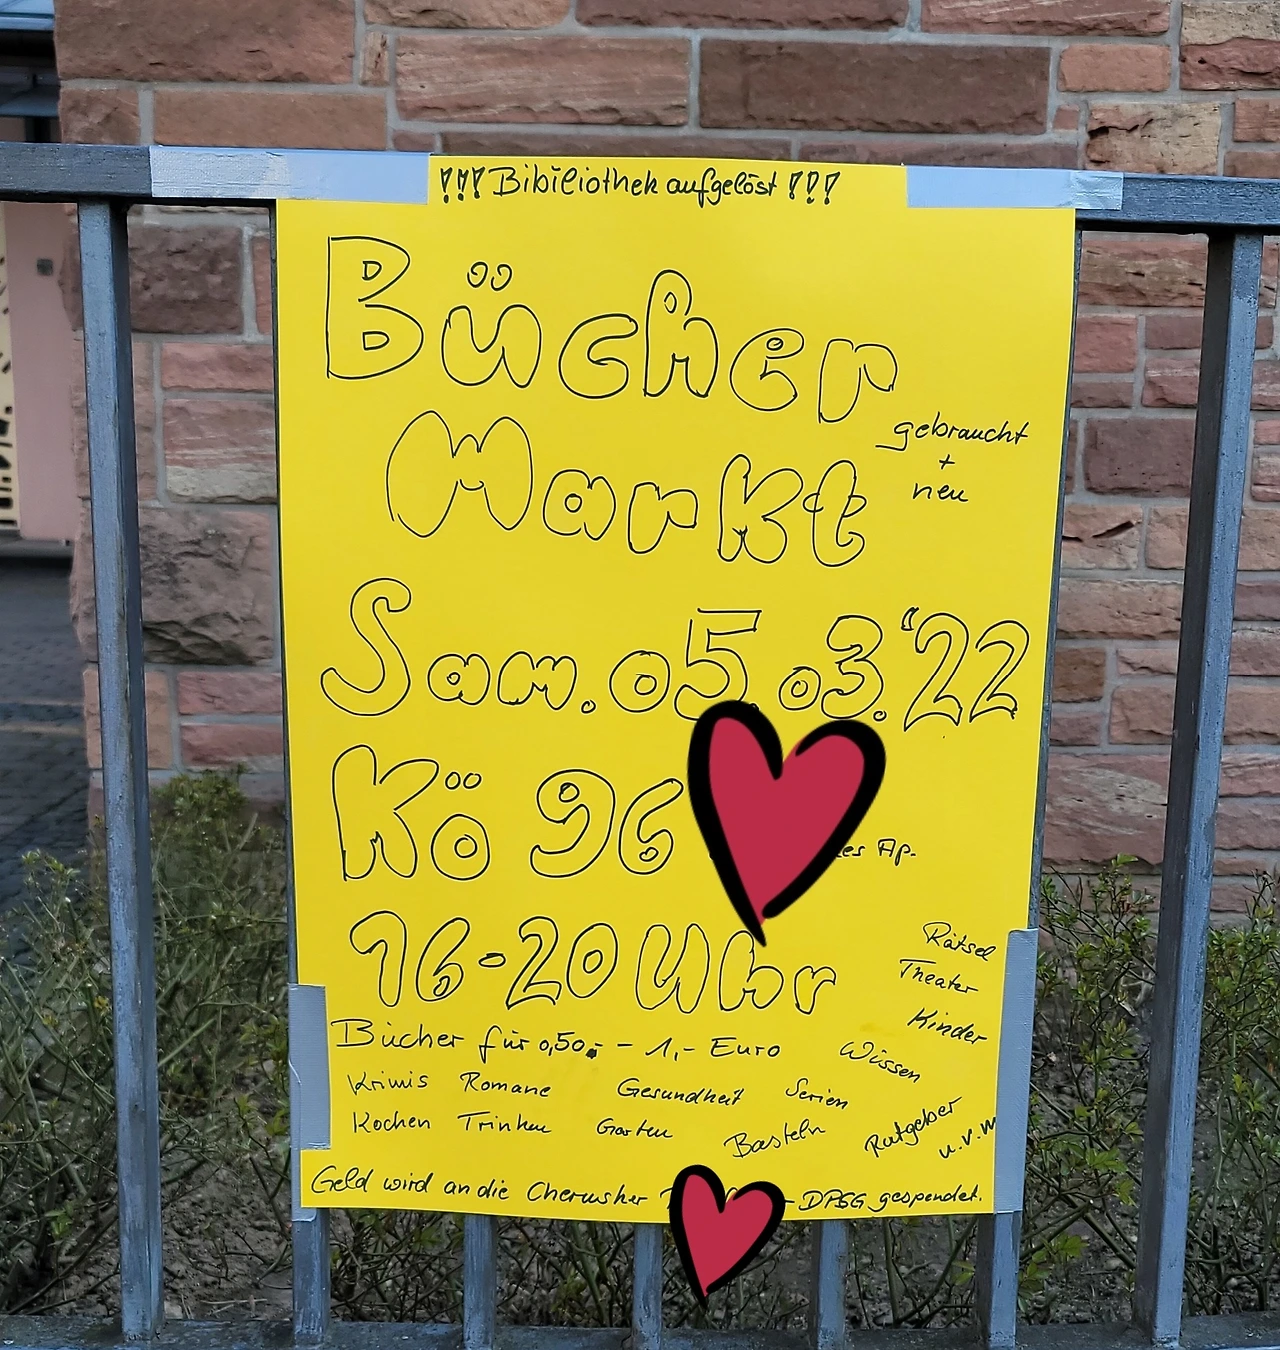 !!! Bibiliothek aufgelöst !!!
Bücher
Markt
gebraucht
+
neu
Sam. 05.03.'22
Kö 96
Ap.
16-20 Uhr
Rätsel
Theater
Kinder
Wissen
Bücher für 0,50,- - 1,- Euro
Krimis Romane Gesundheit Serien
Kochen Trinken Garten Basteln Ratgeber
u.v.m
Geld wird an die Cherusker - DPSG gespendet.